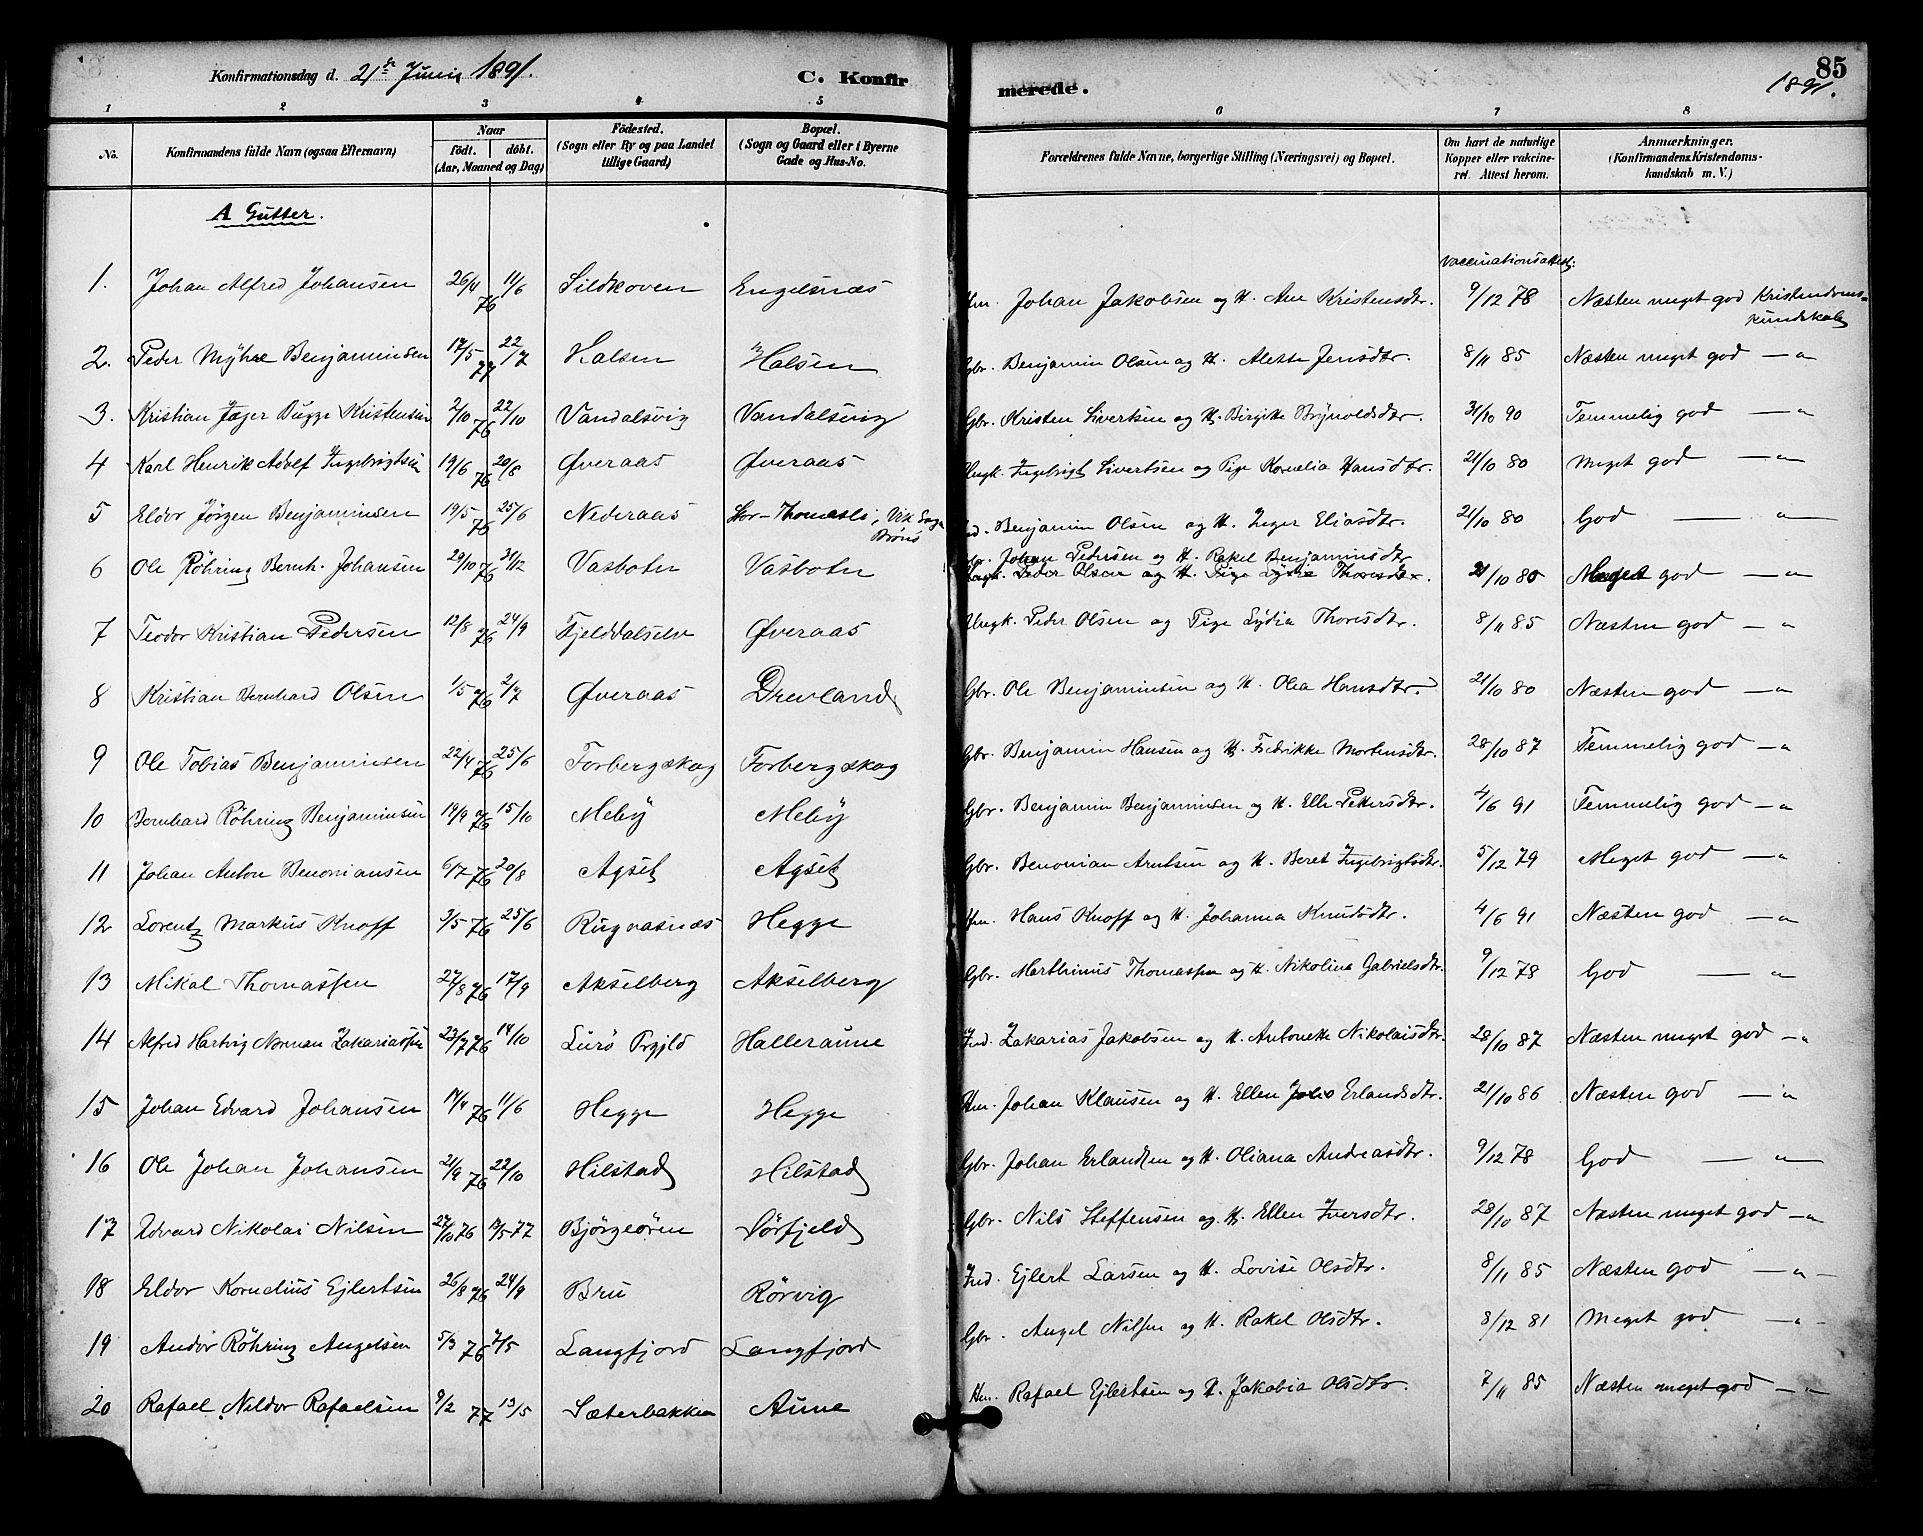 Konfirmationsdag d. 21de Juni 1891. C. Konfirmerede. 85
1891.
1 2 3 4 5 6 7 8
No. Konfirmandens fulde Navn (ogsaa Efternavn) Naar födt. döbt. (Aar, Maaned og Dag) Födested. (Sogn eller By og paa Landet tillige Gaard) Bopæl. (Sogn og Gaard eller i Byerne Gade og Hus-No. Forældrenes fulde Navne, borgerlige Stilling (Næringsvei) og Bopæl. Om havt de naturlige Kopper eller vakcineret. Attest herom. Anmærkninger. (Konfirmandens Kristendomskundskab m. V.)
A Gutter.
Vaccinationsattest:
1. Johan Alfred Johansen 26/4 76 11/6 Sildhoven Engelsnæs Hm. Johan Jakobsen og H. Ane Kristensdtr. 9/12 78 Næsten meget god Kristendomskundskab
2. Peder Myhre Benjaminsen 17/5 77 22/7 Halsen Halsen Gbr. Benjamin Olsen og H. Alette Jensdtr. 8/11 85 Næsten meget god — "
3. Kristian Jæger Bugge Kristensen 2/10 76 22/10 Vandalsvig Vandalsvig Gbr. Kristen Sivertsen og H. Birgitte Brynoldsdtr. 31/10 90 Temmelig god — "
4 Karl Henrik Adolf Ingebrigtsen 19/6 76 20/8 Øveraas Øveraas Ungk. Ingebrigt Sivertsen og Pige Kornelia Hansdtr. 21/10 80 Meget god — "
5 Eldor Jörgen Benjaminsen 19/5 76 25/6 Nederaas Stor-Thomasli, Vik Sogn Brönö Ind. Benjamin Olsen og H. Inger Eliasdtr. 21/10 80 God — "
6 Ole Röhring Bernh. Johansen 29/10 76 31/12 Vasbotn Vasbotn Gbr. Johan Pedersen og H. Rakel Benjaminsdtr
Ungk. Peder Olsen og H. Pige Lydia Thoresdtr. 21/10 80 Meget god — "
7 Teodor Kristian Pedersen 12/8 76 24/9 Fjelddalselv Øveraas Ungk. Peder Olsen og Pige Lydia Thoresdtr. 8/11 85 Næsten god — "
8 Kristian Bernhard Olsen 1/5 76 2/7 Øveraas Drevland Gbr. Ole Benjaminsen og H. Olea Hansdtr. 21/10 80 Næsten god — "
9 Ole Tobias Benjaminsen 22/4 76 25/6 Forbergskog Forbergskog Gbr. Benjamin Hansen og H. Fredrikke Mortensdtr. 28/10 87 Temmelig god — "
10 Bernhard Röhring Benjaminsen 19/9 76 15/10 Meby Meby Gbr. Benjamin Benjaminsen og H. Elle Pettersdtr. 4/6 91 Temmelig god — "
11 Johan Anton Benoniansen 6/7 76 20/8 Agset Agset Gbr. Benonian Arntsen og H. Beret Ingebrigtsdtr. 5/12 79 Meget god — "
12 Lorentz Markus Knoff 3/5 76 25/6 Rugvasnæs Hegge Hm. Hans Knoff og H. Johanna Knudsdtr. 4/6 91 Næsten god — "
13 Mikal Thomassen 27/8 76 17/9 Akselberg Akselberg Gbr. Marthinus Thomassen og H. Nikolina Gabrielsdtr. 9/12 78 God — "
14 Alfred Hartvig Norman Zakariassen 23/7 76 14/10 Lurö Prgjld Halleraune Ind. Zakarias Jakobsen og H. Antonette Nikolaisdtr. 28/10 87 Næsten meget god — "
15 Johan Edvard Johansen 14/4 76 11/6 Hegge Hegge Hm. Johan Klausen og H. Ellen Erlandsdtr. 21/10 86 Næsten god — "
16 Ole Johan Johansen 2/9 76 22/10 Hilstad Hilstad Gbr. Johan Erlandsen og H. Oliana Andreasdtr. 9/12 78 God — "
17 Edvard Nikolai Nilsen 27/10 76 13/5 77 Björgeören Sörfjeld Gbr. Nils Steffensen og H. Ellen Iversdtr. 28/10 87 Næsten meget god — "
18 Eldor Kornelius Ejlertsen 26/8 76 24/9 Bru Rörvig Ind. Ejlert Larsen og H. Lovise Olsdtr. 8/11 85 Næsten god — " —
19 Andor Röhring Angelsen 5/3 76 7/5 Langfjord Langfjord Gbr. Angel Nilsen og H. Rakel Olsdtr. 8/12 81 Meget god — "
20 Rafael Nildor Rafaelsen 9/2 77 13/5 Sæterbakken Aune Hm. Rafael Ejlertsen og H. Jakobia Olsdtr. 7/11 85 Næsten meget god — "